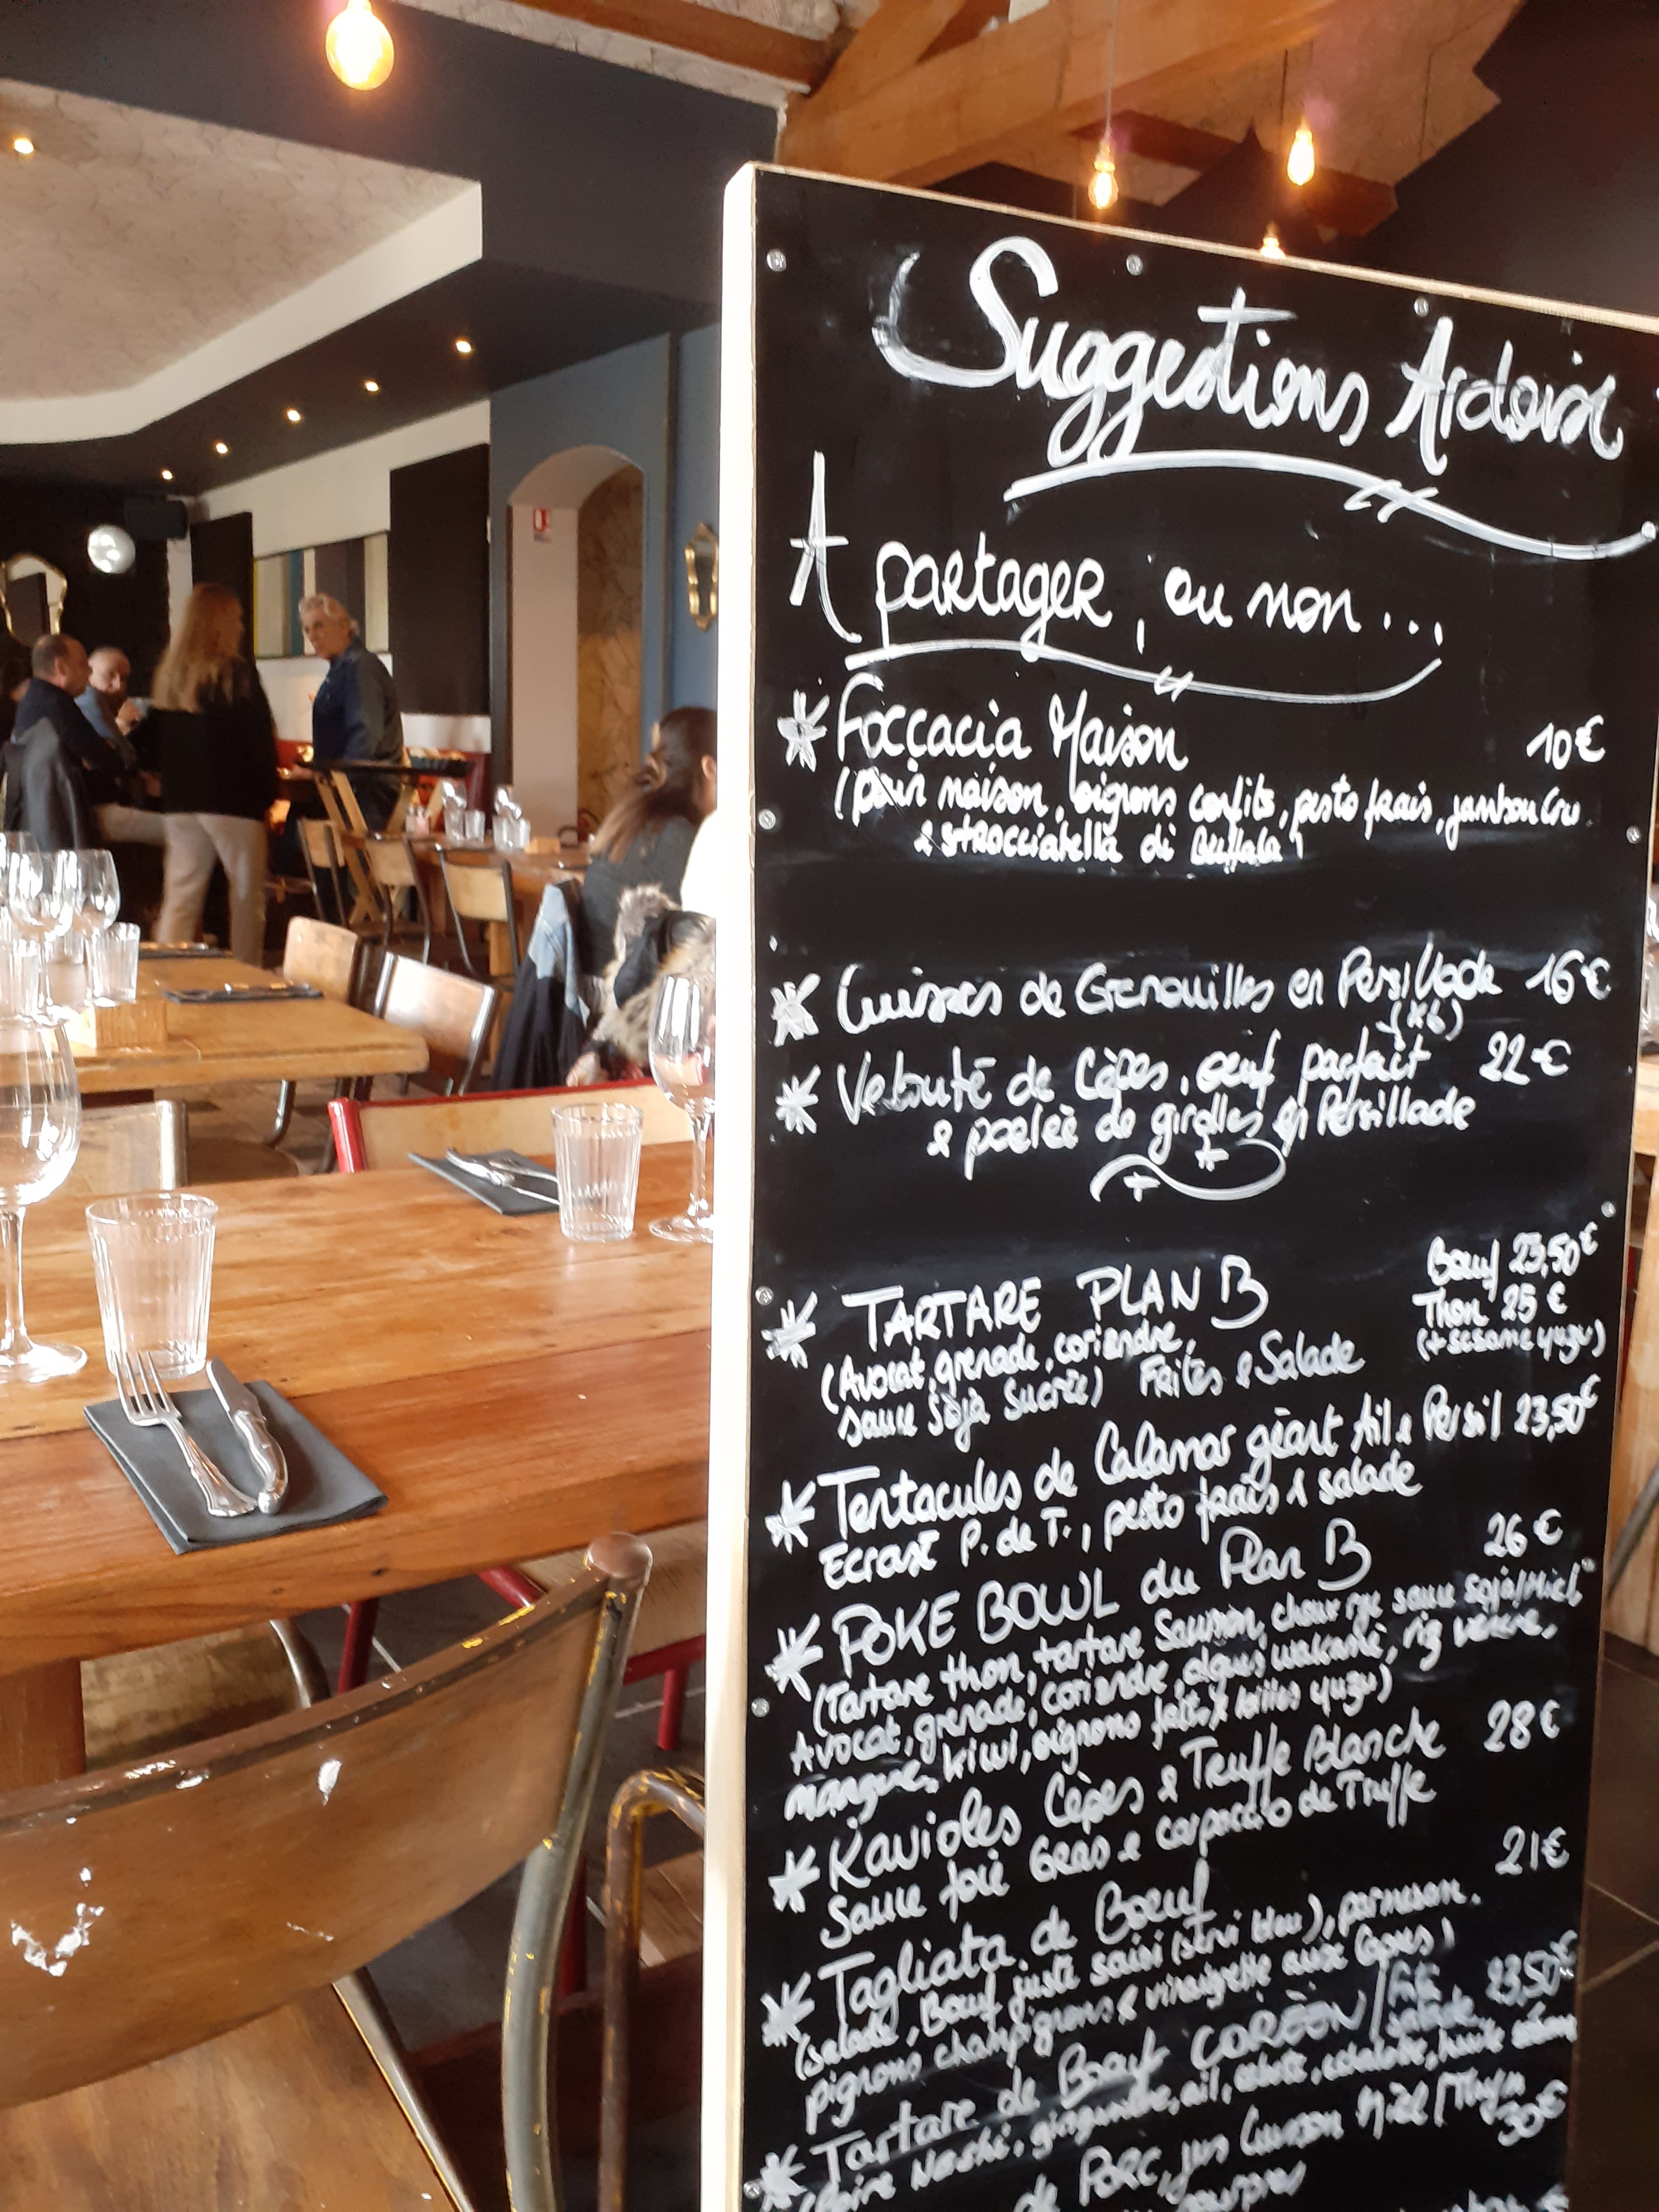 Suggestions Ardoise
A partager, ou non...
* Foccacia Maison 10€
(pain maison, oignons confits, pesto frais, jambon cru
& stracciatella di Buffala)
* Cuisses de Grenouilles en Persillade 16€
(x6)
* Velouté de Cèpes, oeuf parfait 22€
& poelée de girolles en Persillade
* TARTARE PLAN B Boeuf 23,50€
Thon 25€
(Avocat, grenade, coriandre, (+ sesame yuzu)
sauce soja sucrée) Frites & Salade
* Tentacules de Calamar géant Ail & Persil 23,50€
Ecrasé P. de T., pesto frais & salade
* POKE BOWL du Plan B 26€
(Tartare thon, tartare Saumon, choux rge sauce soja/miel
Avocat, grenade, coriandre, algues wakamé, riz vénéré,
mangue, kiwi, oignons frits & billes yuzu)
* Ravioles Cèpes & Truffe Blanche 28€
Sauce foie Gras & carpaccio de Truffe
* Tagliata de Boeuf 21€
(salade, Boeuf juste saisi (servi bleu), parmesan,
pignons champignons & vinaigrette aux Cèpes)
* Tartare de Boeuf CORÉEN / salade 23,50€
(Poire Nashi, gingembre, ail, échalote, huile
de Porc, jus Cuisson Miel/Thym
30€